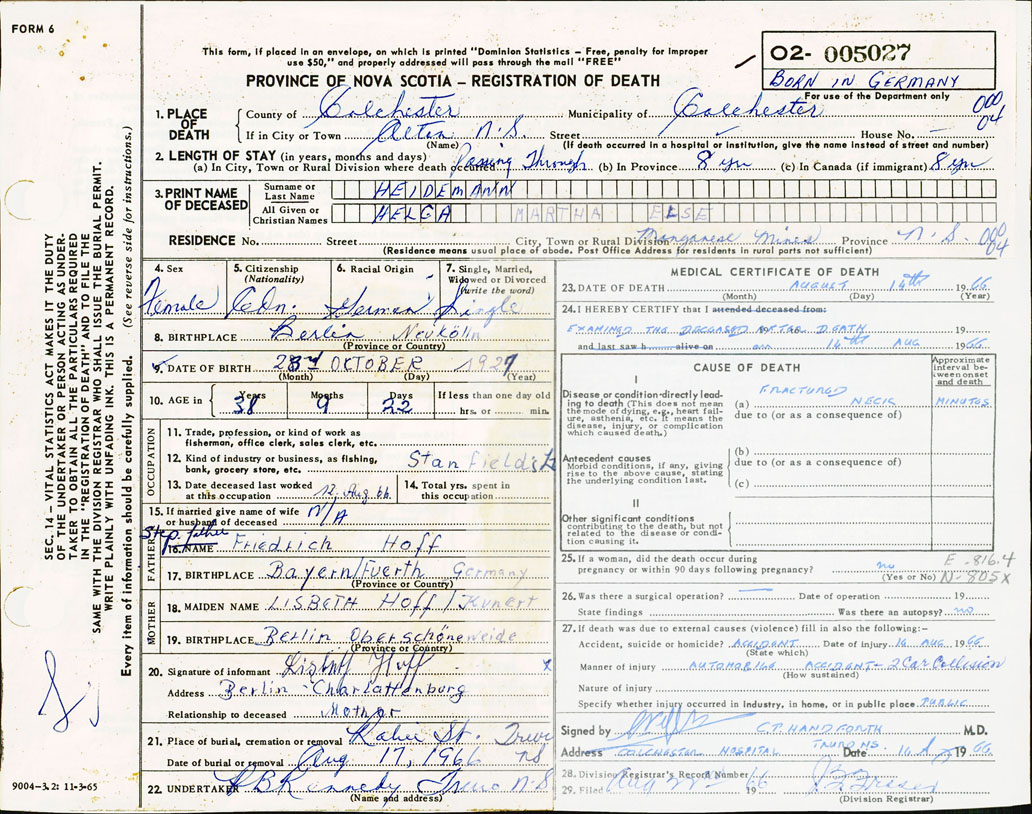 FORM 6
This form, if placed in an envelope, on which is printed "Dominion Statistics – Free, penalty for improper
use $50," and properly addressed will pass through the mail "FREE"
PROVINCE OF NOVA SCOTIA – REGISTRATION OF DEATH
02- 005027
BORN IN GERMANY
For use of the Department only
1. PLACE OF DEATH
County of Colchester Municipality of Colchester
000 04
If in City or Town Alton N.S. Street House No.
(Name) (If death occurred in a hospital or institution, give the name instead of street and number)
2. LENGTH OF STAY (in years, months and days)
(a) In City, Town or Rural Division where death occurred Passing Through (b) In Province 8 yrs (c) In Canada (if immigrant) 8 yrs
3. PRINT NAME OF DECEASED
Surname or Last Name HEIDEMANN
All Given or Christian Names HELGA MARTHA ELSE
RESIDENCE No. Street City, Town or Rural Division Manganese Mines Province N.S. 000 04
(Residence means usual place of abode. Post Office Address for residents in rural parts not sufficient)
SEC. 14 – VITAL STATISTICS ACT MAKES IT THE DUTY
OF THE UNDERTAKER OR PERSON ACTING AS UNDER-
TAKER TO OBTAIN ALL THE PARTICULARS REQUIRED
IN THE "REGISTRATION OF DEATH" AND TO FILE THE
SAME WITH THE DIVISION REGISTRAR WHO SHALL ISSUE THE BURIAL PERMIT.
WRITE PLAINLY WITH UNFADING INK. THIS IS A PERMANENT RECORD.
Every item of information should be carefully supplied. (See reverse side for instructions.)
4. Sex Female
5. Citizenship (Nationality) Cdn.
6. Racial Origin German
7. Single, Married, Widowed or Divorced (write the word) Single
8. BIRTHPLACE Berlin Neukölln
(Province or Country)
9. DATE OF BIRTH 23rd OCTOBER 1927
(Month) (Day) (Year)
10. AGE in Years 38 Months 9 Days 22 If less than one day old
hrs. or min.
OCCUPATION
11. Trade, profession, or kind of work as
fisherman, office clerk, sales clerk, etc.
12. Kind of industry or business, as fishing,
bank, grocery store, etc. Stanfield's
13. Date deceased last worked
at this occupation 12. Aug. 66
14. Total yrs. spent in
this occupation
15. If married give name of wife
or husband of deceased N/A
Step father
FATHER
16. NAME Friedrich Hoff
17. BIRTHPLACE Bayern/Fuerth Germany
(Province or Country)
MOTHER
18. MAIDEN NAME LISBETH Hoff / Kunert
19. BIRTHPLACE Berlin Oberschöneweide
(Province or Country)
20. Signature of informant Lisbeth Hoff
Address Berlin-Charlottenburg
Relationship to deceased Mother
21. Place of burial, cremation or removal St. Truro NS
Date of burial or removal Aug 17, 1966
22. UNDERTAKER Kennedy Truro N.S
(Name and address)
9004-3.2: 11-3-65
MEDICAL CERTIFICATE OF DEATH
23. DATE OF DEATH AUGUST 14th 1966
(Month) (Day) (Year)
24. I HEREBY CERTIFY that I attended deceased from:
EXAMINED THE DECEASED AFTER DEATH 19
and last saw h alive on on 14th AUG 1966
CAUSE OF DEATH
Approximate interval between onset and death
I
Disease or condition directly leading to death (This does not mean
the mode of dying, e.g., heart failure, asthenia, etc. It means the
disease, injury, or complication
which caused death.)
(a) FRACTURED NECK MINUTES
due to (or as a consequence of)
Antecedent causes
Morbid conditions, if any, giving
rise to the above cause, stating
the underlying condition last.
(b)
due to (or as a consequence of)
(c)
II
Other significant conditions
contributing to the death, but not
related to the disease or condition causing it.
25. If a woman, did the death occur during
pregnancy or within 90 days following pregnancy? no
(Yes or No)
E-816.4
N-805x
26. Was there a surgical operation? Date of operation 19
State findings Was there an autopsy? no
27. If death was due to external causes (violence) fill in also the following:–
Accident, suicide or homicide? ACCIDENT Date of injury 14 AUG 1966
(State which)
Manner of injury AUTOMOBILE ACCIDENT – 2 Car Collision
(How sustained)
Nature of injury
Specify whether injury occurred in Industry, in home, or in public place PUBLIC
Signed by C.T. HANDFORTH M.D.
Address COLCHESTER HOSPITAL TRURO NS Date 1966
28. Division Registrar's Record Number
29. Filed Aug 22 196
(Division Registrar)